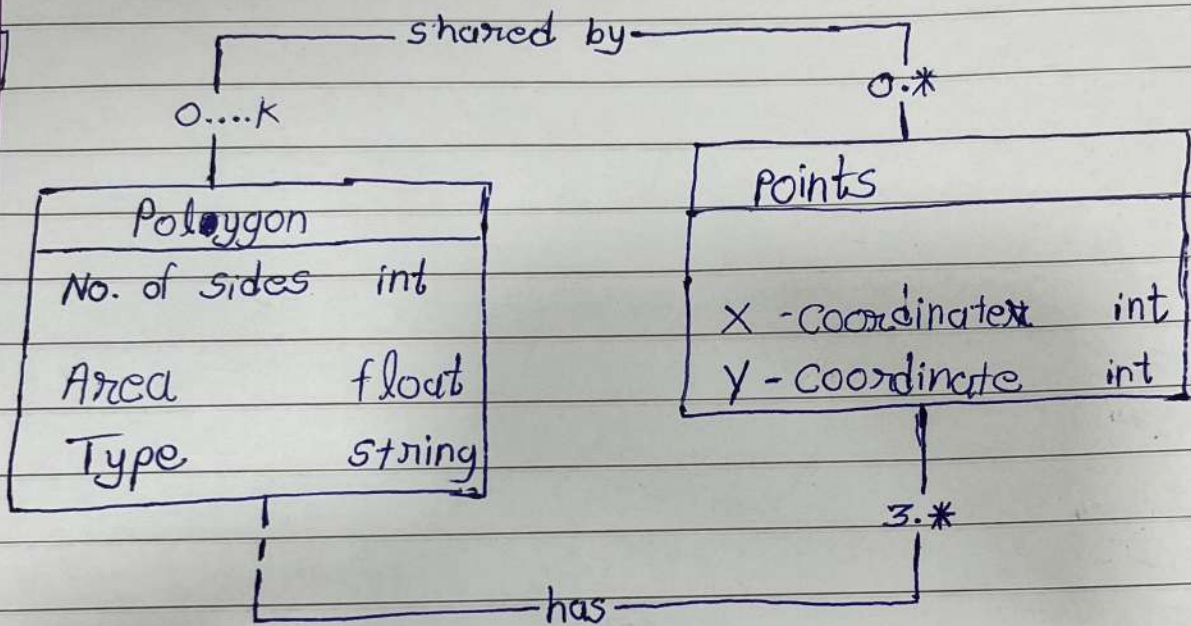 shared by
0....K
0.*
Poloygon
No. of sides int
Area float
Type string
points
X - Coordinate int
Y - Coordinate int
3.*
has